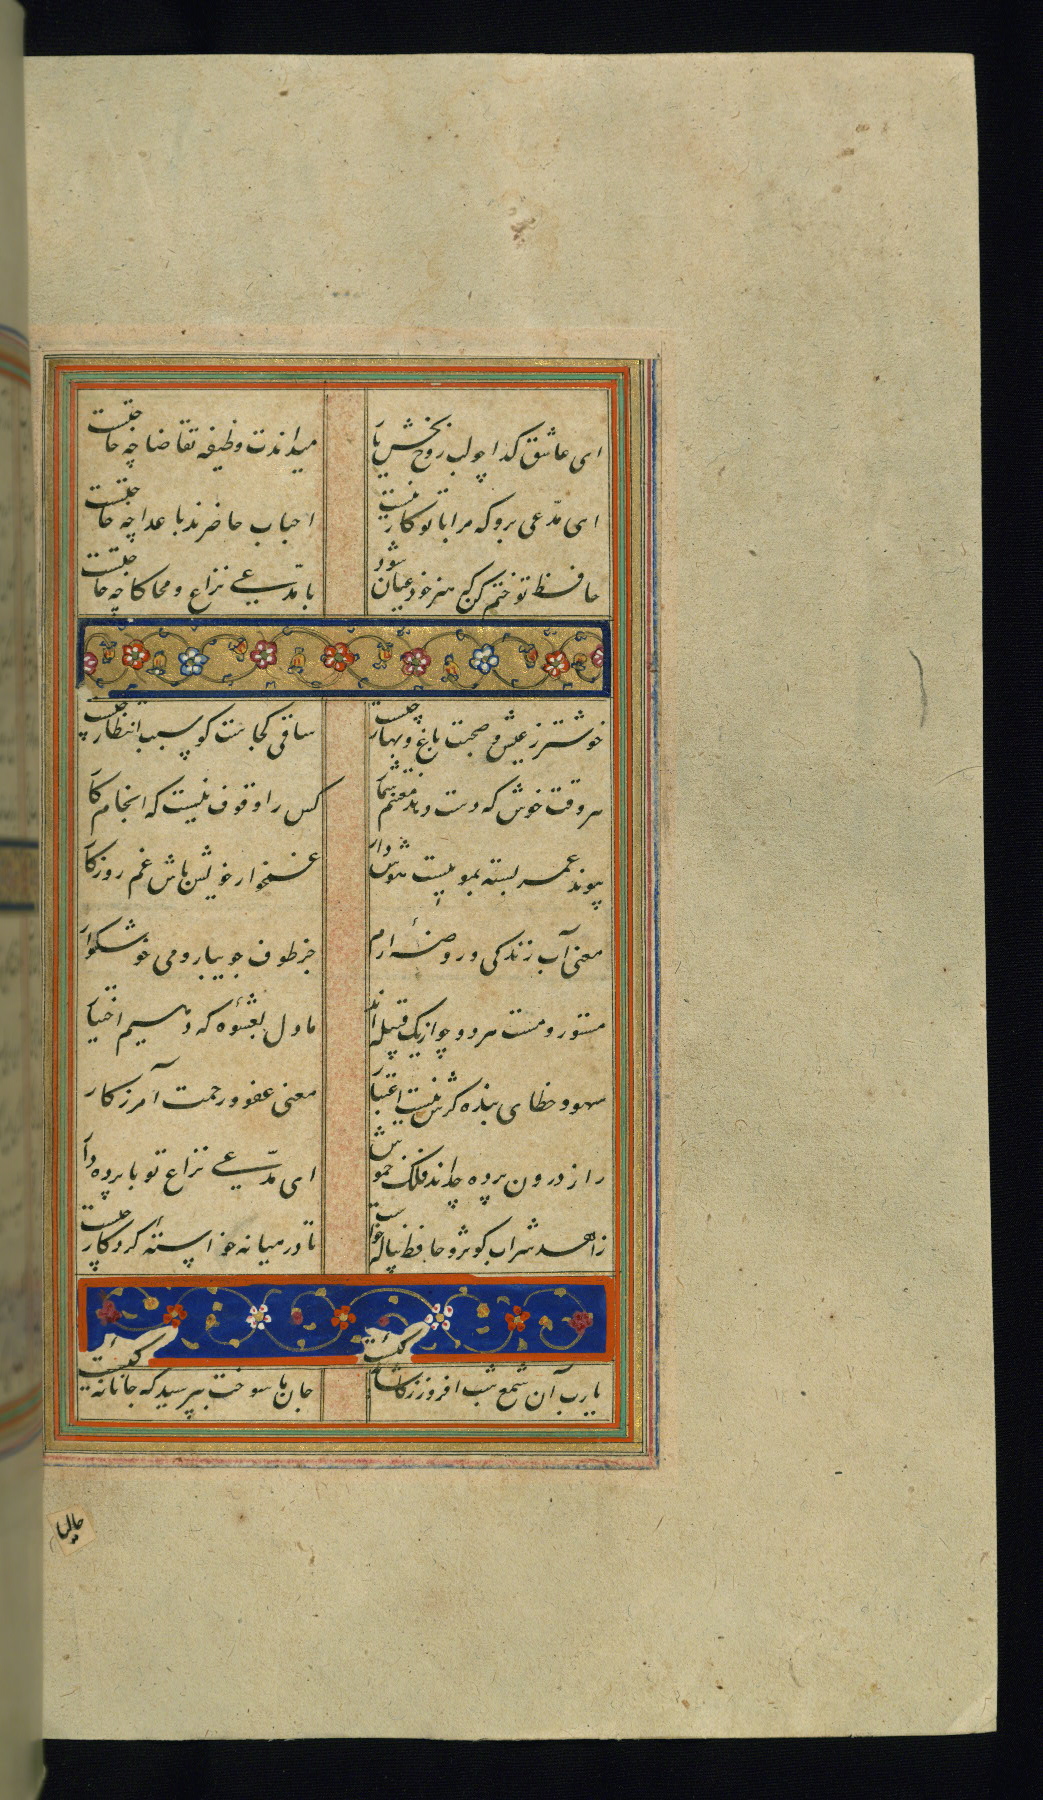 ای عاشق گدا چو لب روح بخش یار
میداندت وظیفه تقاضا چه حاجتست
ای مدّعی برو که مرا با تو کار نیست
احباب حاضرند باعدا چه حاجتست
حافظ تو ختم کن که هنر خود عیان شود
با مدّعی نزاع و محاکا چه حاجتست
خوشتر ز عیش و صحبت باغ و بهار چیست
ساقی کجاست کو سبب انتظار چیست
هر وقت خوش که دست دهد مغتنم شمار
کس را وقوف نیست که انجام کار
پیوند عمر بسته بموییست هوش دار
غمخوار خویش باش غم روزگار
معنی آب زندگی و روضهٔ ارم
جز طرف جویبار و می خوشگوار
مستور و مست هر دو چو از یک قبیله اند
ما دل بعشوهٔ که دهیم اختیار
سهو و خطای بنده گرش نیست اعتبار
معنی عفو و رحمت آمرزگار
راز درون پرده چداند فلک خموش
ای مدّعی نزاع تو با پرده دار
زاهد شراب کوثر و حافظ پیاله خواست
تا در میانه خواسته کردگار چیست
یارب آن شمع شب افروز ز کاشانه کیست
جان ما سوخت بپرسید که جانانه کیست
حالیا